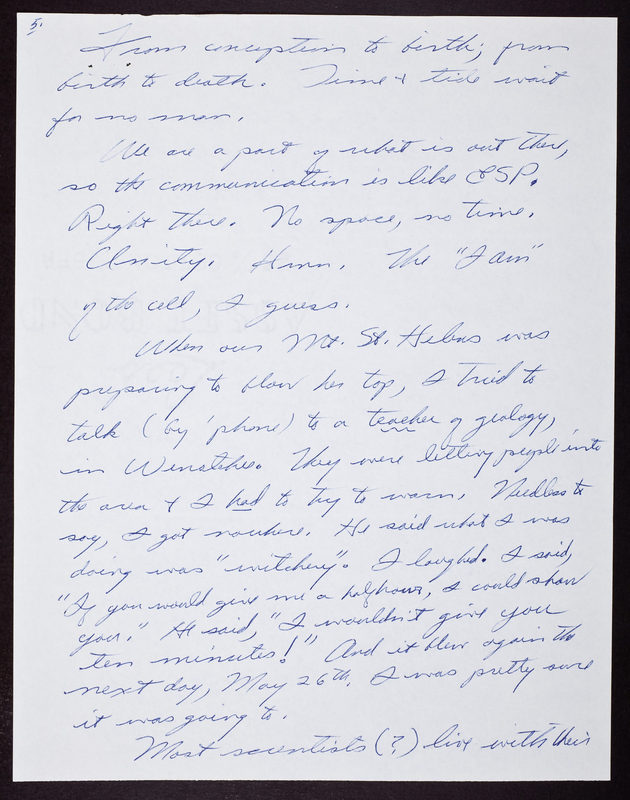 5.
From conception to birth; from
birth to death. Time & tide wait
for no man.
We are a part of what is out there,
so the communication is like ESP.
Right there. No space, no time.
Unity. Hmm. The "I am"
of the cell, I guess.
When our Mt. St. Helens was
preparing to blow her top, I tried to
talk (by 'phone) to a teacher of geology,
in Wenatchee. They were letting people into
the area & I had to try to warn. Needless to
say, I got nowhere. He said what I was
doing was "witchery". I laughed. I said,
"If you would give me a half hour, I could show
you." He said, "I wouldn't give you
ten minutes!" And it blew again the
next day, May 26th. I was pretty sure
it was going to.
Most scientists (?) live with their